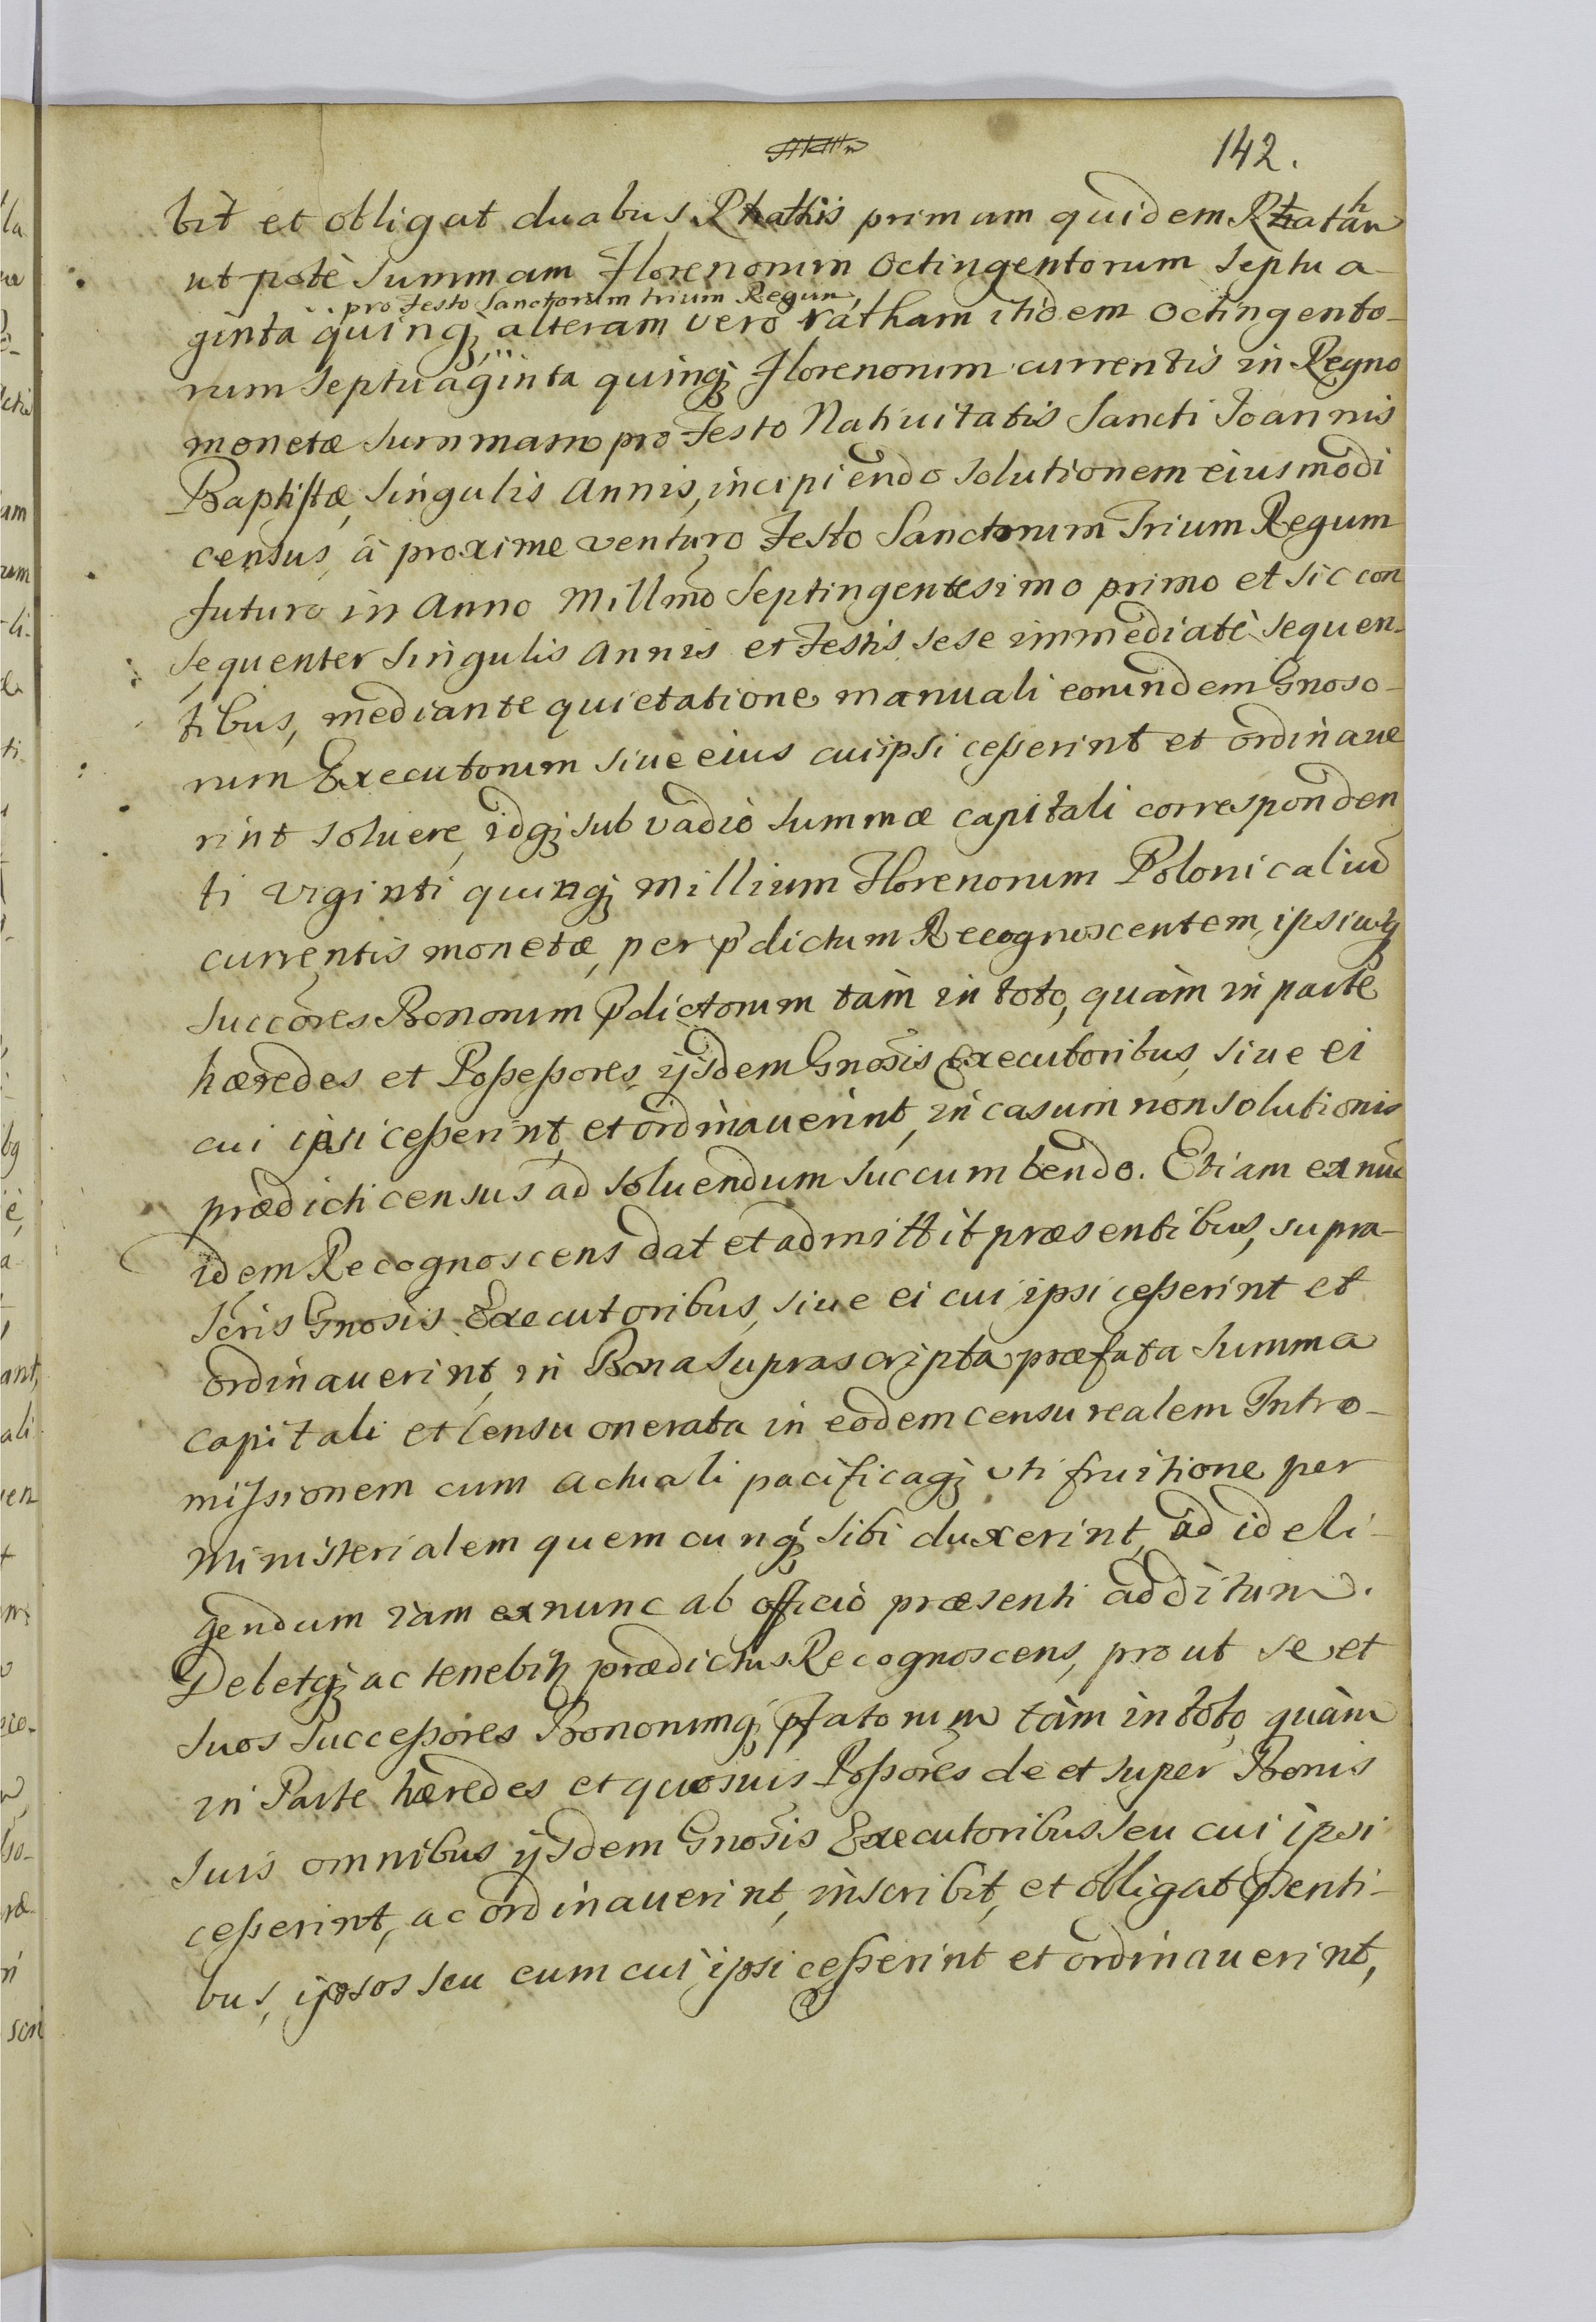 142.
bit et obligat duabus Rhathis primam quidem Rhatham
ut potè summam Florenorum Octingentorum septua-
pro Festo Sanctorum trium Regum,
ginta quinq; alteram vero ratham itidem octingento-
rum septuaginta quinq; Florenorum currentis in Regno
monetæ summam pro Festo Natiuitatis Sancti Joannis
Baptistæ, singulis Annis, incipiendo solutionem eiusmodi
census, â proxime venturo Festo Sanctorum Trium Regum
futuro in Anno Millmo Septingentesimo primo et sic con
sequenter singulis Annis et Festis sese immediatè sequen-
tibus, mediante quietatione manuali eorundem Gnoso-
rum Executorum siue eius cui ipsi cesserint et ordinaue
rint soluere, idq; sub vadio summæ capitali corresponden
ti viginti quinq; millium Florenorum Polonicaliu
currentis monetæ, per p̄dictum Recognoscentem, ipsiusq;
succōres Bonorum p̄dictorum tàm in toto, quàm in parte
hæredes et Possessores, ijsdem Gnosis Executoribus, siue ei
cui ipsi cesserint, et ordinauerint, in casum non solutionis
prædicti census ad soluendum succumbendo. Etiam ex nūc
idem Recognoscens dat et admittit præsentibus, supra-
scris Gnosis Executoribus, siue ei cui ipsi cesserint et
ordinauerint, in Bona suprascripta præfata summa
capitali et Censu onerata in eodem censu realem Intro-
missionem cum actuali pacificaq; vti fruitione per
Ministerialem quemcunq; sibi duxerint, ad id eli-
gendum iam ex nunc ab officio præsenti additum.
Debetq; ac tenebit prædictus Recognoscens, prout se et
suos successores Bonorumq; p̄fatorum tàm in toto, quàm
in Parte hæredes et quosuis Possōres de et super Bonis
suis omnibus ijsdem Gnosis Executoribus seu cui ipsi
cesserint, ac ordinauerint, inscribit, et obligat p̄senti-
bus, ipsos seu eum cui ipsi cesserint et ordinauerint,